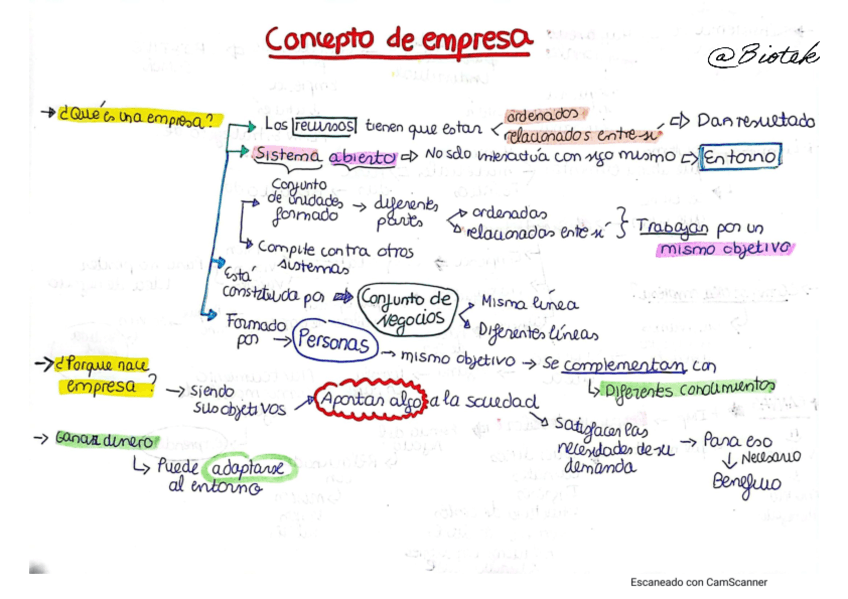 Concepto de empresa
@Biotek
→ ¿Qué es una empresa?
Los recursos tienen que estar < ordenados
relacionados entre sí ⇒ Dan resultado
Sistema abierto ⇒ No solo interactúa con sigo mismo ⇒ Entorno
Conjunto
de unidades → diferentes
formado partes
ordenadas
relacionadas entre sí } Trabajan por un
mismo objetivo
Compite contra otros
sistemas
Está
constituida por ⇒ Conjunto de
negocios
Misma línea
Diferentes líneas
Formado
por → Personas → mismo objetivo → Se complementan con
↳ Diferentes conocimientos
→ ¿Porque nace
empresa? → Siendo
sus objetivos → Aportar algo a la sociedad
Satisfacer las
necesidades de su
demanda → Para eso
↓ Necesario
Beneficio
→ Ganar dinero
↳ Puede adaptarse
al entorno
Escaneado con CamScanner